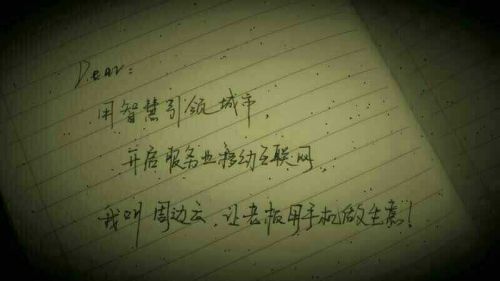 Dear:
用智慧引领城市,
开启服务业移动互联网,
我叫周边云,让老板用手机做生意!